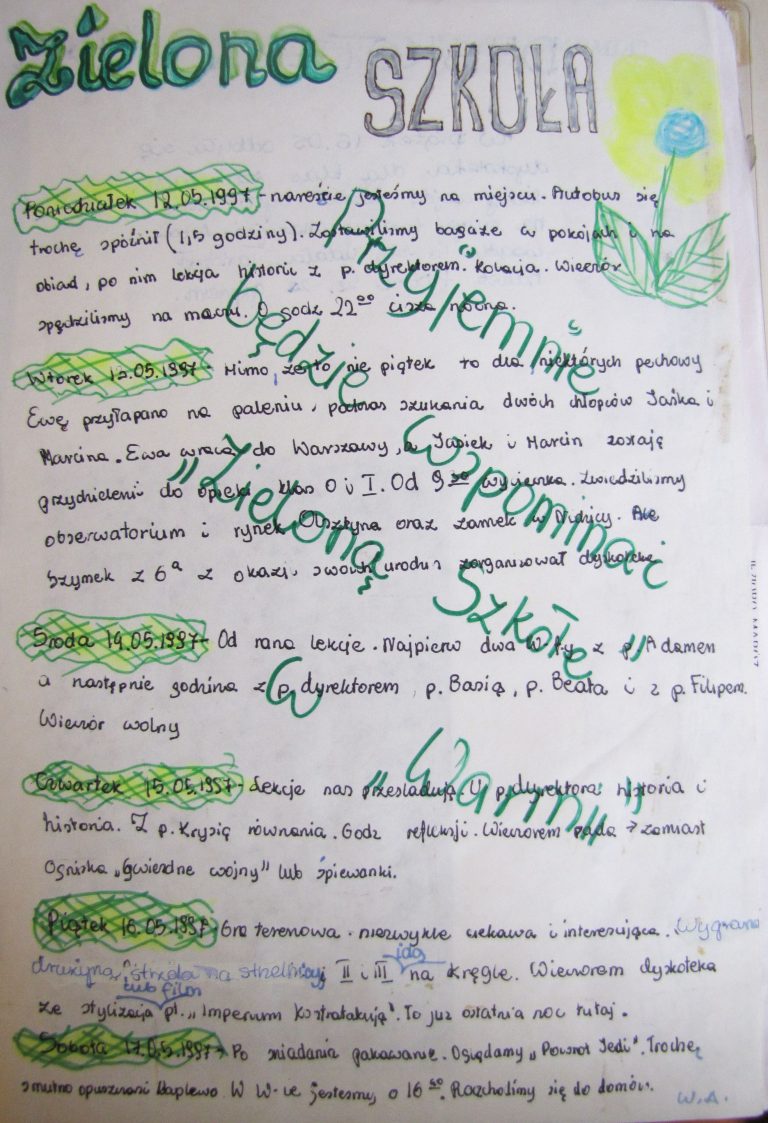 Zielona SZKOŁA
Poniedziałek 12.05.1997 - nareście jesteśmy na miejscu. Autobus się
trochę spóźnił (1,5 godziny). Zostawiliśmy bagaże w pokojach i na
obiad, po nim lekcja historii z p. dyrektorem. Kolacja. Wieczór
spędziliśmy na meczu. O godz 22⁰⁰ cisza nocna.
Wtorek 12.05.1997 - Mimo, że to nie piątek to dla niektórych pechowy
Ewę przyłapano na paleniu, podczas szukania dwóch chłopców Jaśka i
Marcina. Ewa wraca do Warszawy, a Jasiek i Marcin zostają
przydzieleni do opieki klas 0 i I. Od 9³⁰ wycieczka. Zwiedziliśmy
obserwatorium i rynek Olsztyna oraz zamek w Nidzicy. Ale
Szymek z 6ᵃ z okazji swoich urodzin zorganizował dyskotekę
Środa 14.05.1997 - Od rana lekcje. Najpierw dwa W-f-y z p. Adamem
a następnie godzina z p. dyrektorem, p. Basią, p. Beatą i z p. Filipem.
Wieczór wolny
Czwartek 15.05.1997 - Lekcje nas prześladują. U p. dyrektora historia i
historia. Z p. Krysią równania. Godz refleksji. Wieczorem pada → zamiast
Ogniska „Gwiezdne wojny" lub śpiewanki.
Piątek 16.05.1997 - Gra terenowa. niezwykle ciekawa i interesująca. Wygrana
drużyna strzela na strzelnicy, II i III idą na kręgle. Wieczorem dyskoteka
lub film
ze stylizacją pt. „Imperium kontratakują". To już ostatnia noc tutaj.
Sobota 17.05.1997 → Po śniadaniu pakowanie. Oglądamy „Powrót Jedi". Trochę
smutno opuszczać Waplewo. W W-wie jesteśmy o 16³⁰. Rozchodzimy się do domów.
W.A.
Przyjemnie
będzie
wspominać
„Zieloną
Szkołę"
W
„Warmii"